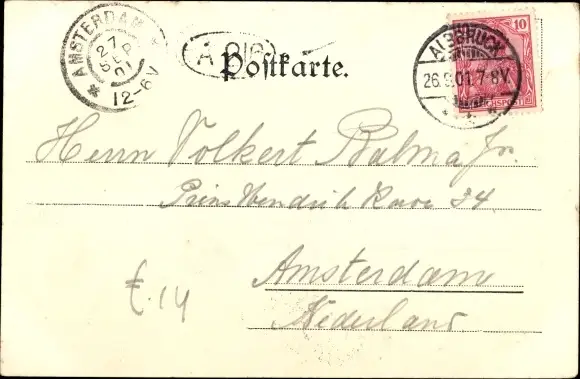 AMSTERDAM
27 SEP 01
12-6V
Postkarte.
ALBBRUCK
26.9.01.7-8V.
10
REICHSPOST
Herrn Volkert Balma Jr.
Prins Hendrik 34
Amsterdam
Nederland